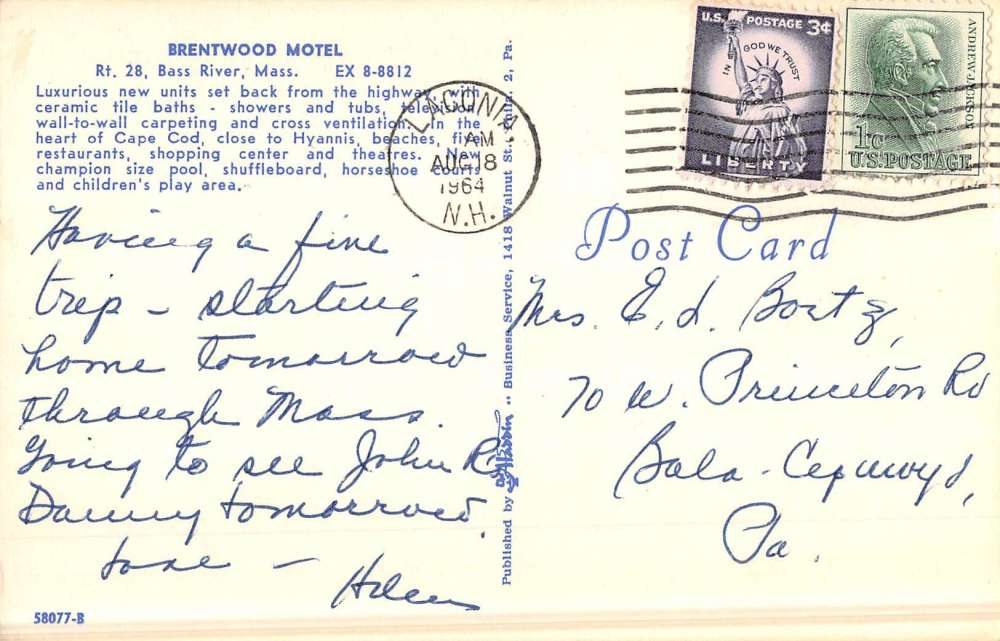 BRENTWOOD MOTEL
Rt. 28, Bass River, Mass. EX 8-8812
Luxurious new units set back from the highway with
ceramic tile baths - showers and tubs, television
wall-to-wall carpeting and cross ventilation. In the
heart of Cape Cod, close to Hyannis, beaches, five
restaurants, shopping center and theatres. New
champion size pool, shuffleboard, horseshoe courts
and children's play area.
Having a fine
trip - starting
home tomorrow
through Mass.
Going to see John R
Danny tomorrow.
Love -
Helen
58077-B
Published by .. Business Service, 1418 Walnut St., Phila. 2, Pa.
LACONIA
AM
AUG 18
1964
N.H.
U.S. POSTAGE 3¢
IN GOD WE TRUST
LIBERTY
ANDREW JACKSON
1¢
U.S. POSTAGE
Post Card
Mrs. E. L.
70 W. Princeton Rd
Bala-Cynwyd,
Pa.